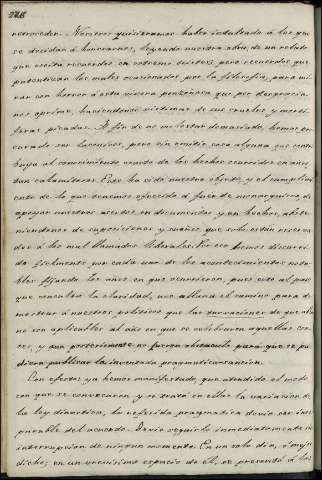 248
retroceder. Nosotros quisieramos haber indultado á los que
se decidan á honrarnos, leyendo nuestra obra, de un relato
que excita recuerdos en estremo tristes; pero recuerdos que
patentizan los males ocasionados por la filosofía, para mi-
rar con horror á esta vivora ponzoñosa que por desgracia
nos oprime, haciendonos victimas de sus crueles y morti-
feras picadas. A fin de no molestar demasiado, hemos pro-
curado ser laconicos, pero sin omitir cosa alguna que contri-
buya al conocimiento exacto de los hechos ocurridos en años
tan calamitosos. Este ha sido nuestro objeto, y el cumplimi-
ento de lo que tenemos ofrecido á fuer de monarquicos, de
apoyar nuestros asertos en documentos y en hechos, abste-
niendonos de suposiciones y sueños que solo estan reserva-
dos á los mal llamados liberales. Por eso hemos discurri-
do fielmente por cada uno de los acontecimientos nota-
bles fijando los años en que ocurrieron, pues esto al paso
que muestra la claridad, nos allana el camino para de-
mostrar á nuestros politicos que las
no son aplicables al año en que se celebraron aquellas cor-
tes, y que posteriormente no fueron obstaculo para que se pu-
diera publicar la inventada pragmatica sancion.
Con efecto; ya hemos manifestado, que atendido el modo
con que se convocaron y se trató en ellas la variacion de
la ley dinastica, la referida pragmatica devia ser inse-
parable del acuerdo. Devia seguirle inmediatamente sin
interrupcion de ningun momento. En un solo dia, ó mejor
dicho, en un brevisimo espacio de él, se presentó á las